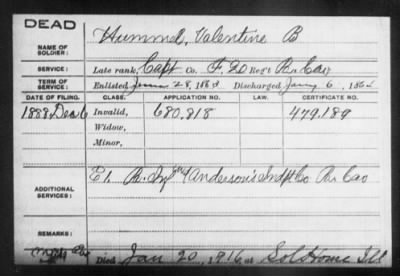 DEAD
NAME OF SOLDIER: Hummel, Valentine B
SERVICE: Late rank, Capt Co. F, 20 Reg't Pa. Cav
TERM OF SERVICE: Enlisted June 28, 1863 Discharged Jany 6, 1864
DATE OF FILING. CLASS. APPLICATION NO. LAW. CERTIFICATE NO.
1888 Dec 6 Invalid, 680,818 479,189
Widow,
Minor,
ADDITIONAL SERVICES: E 1. Pa. Inf & Anderson's Indpt Co Pa Cav
REMARKS:
Died Jan 20, 1916 at Sol Home Ill